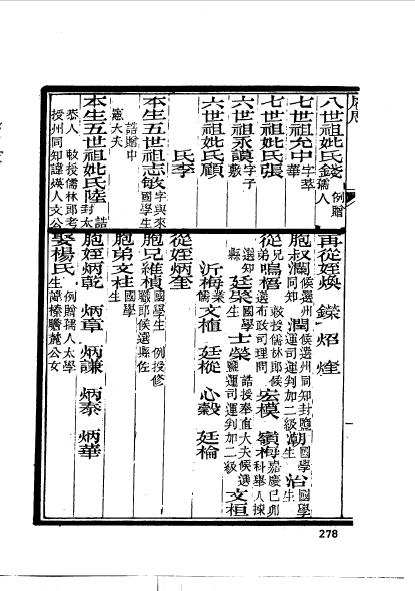 八世祖妣氏錢 例贈孺人
七世祖允中 字萃華
七世祖妣氏張
六世祖永謨 字子敷
六世祖妣氏顧
氏李
本生五世祖志敏 字與來國學生
誥贈中憲大夫
本生五世祖妣氏陸 誥封太
恭人 敕授儒林郎考授州同知諱煐人文公
再從姪煥 鑅 炤 煃
胞叔瀾 候選州同知 潤 候選州同知封鹽運司運判加二級 潮 國學生 治 國學生
從兄弟鳴梧 敕授儒林郎候選布政司理問 宏模 嶺梅 嘉慶己卯科舉人揀
選知縣 廷槼 國學生 士榮 誥授奉直大夫候選鹽運司運判加二級 文桓
沂梅 業儒 文植 廷樅 心穀 廷棆
從姪炳奎
胞兄維楨 國學生 例授修職郎候選縣佐
胞弟文柱 國學生
胞姪炳乾 炳章 炳謙 炳泰 炳華
娶楊氏 例贈孺人太學生諱榛 麓公女
278